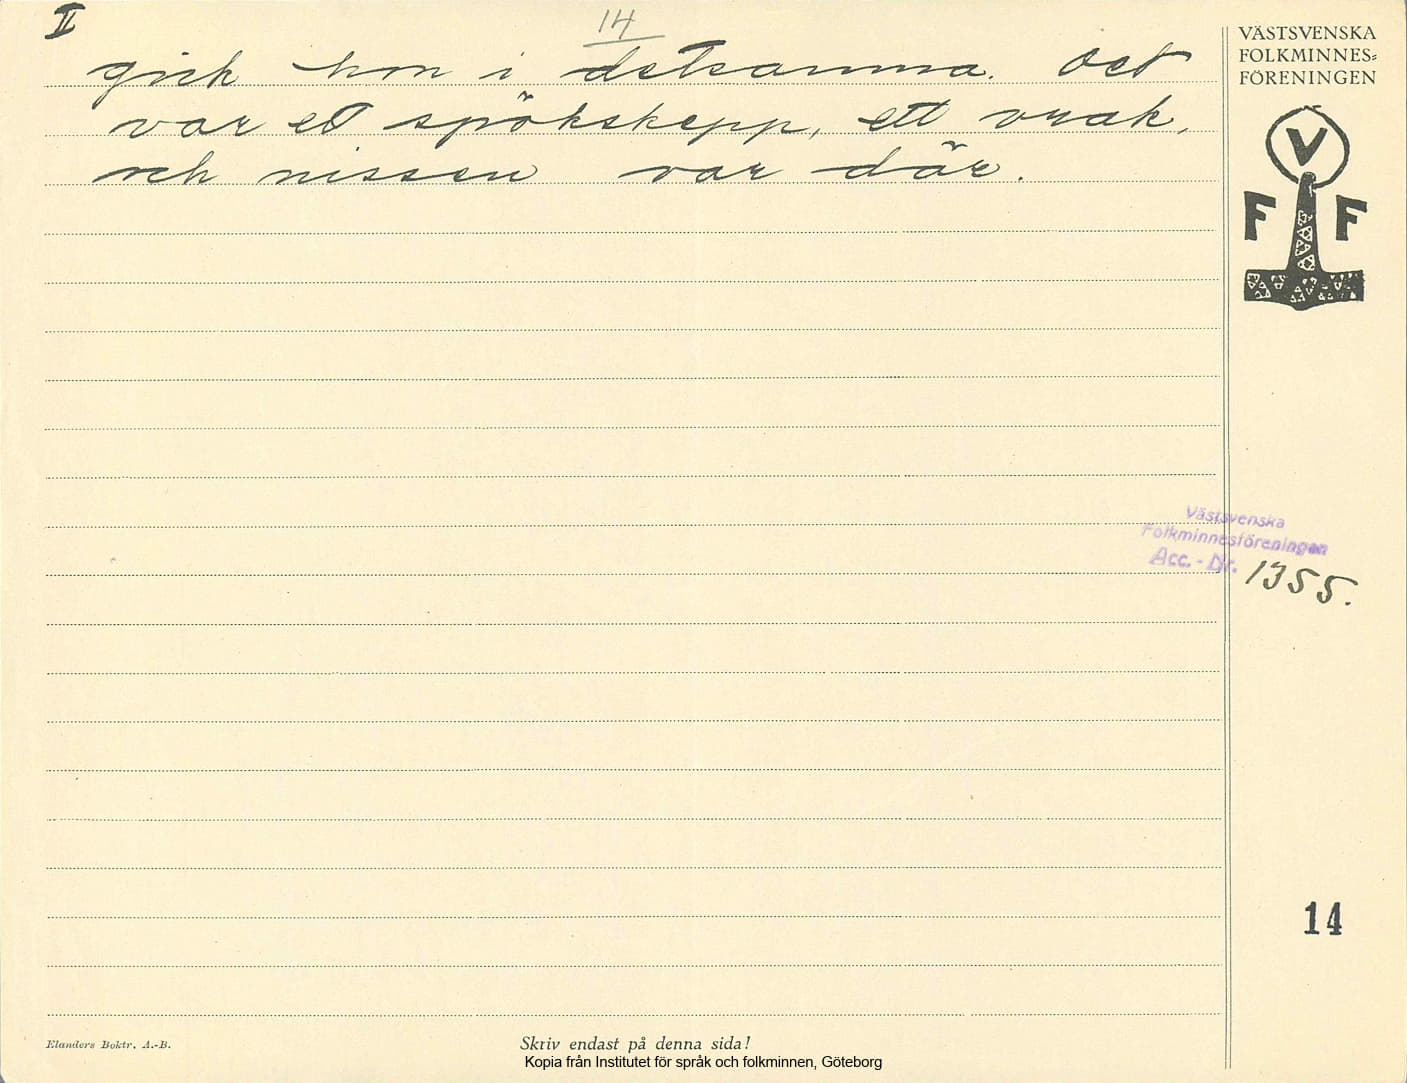 II
14
gick hon i detsamma. Det
var et spökskepp, ett vrak,
och nissen var där.
VÄSTSVENSKA
FOLKMINNES=
FÖRENINGEN
V
F F
Västsvenska
Folkminnesföreningen
Acc. - Nr. 1355.
14
Elanders Boktr. A.-B.
Skriv endast på denna sida!
Kopia från Institutet för språk och folkminnen, Göteborg